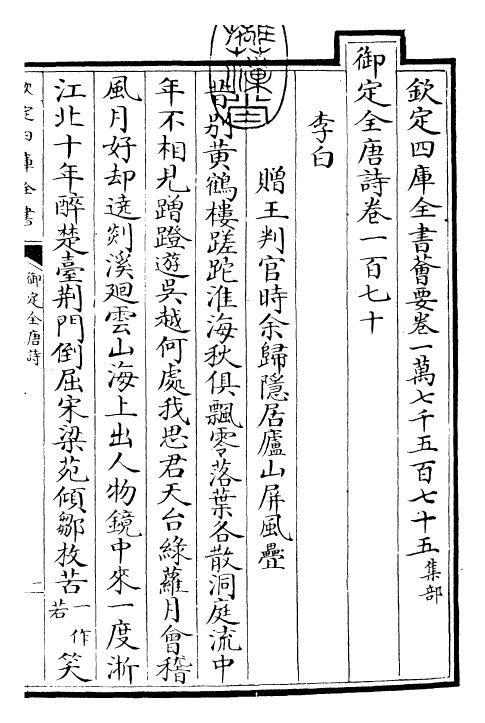 欽定四庫全書薈要卷一萬七千五百七十五集部
御定全唐詩卷一百七十
李白
贈王判官時余歸隱居廬山屏風疊
昔別黃鶴樓蹉跎淮海秋俱飄零落葉各散洞庭流中
年不相見蹭蹬遊吳越何處我思君天台綠蘿月會稽
風月好却遶剡溪廻雲山海上出人物鏡中來一度浙
江北十年醉楚臺荆門倒屈宋梁苑傾鄒枚苦一作若笑
欽定四庫全書
御定全唐詩